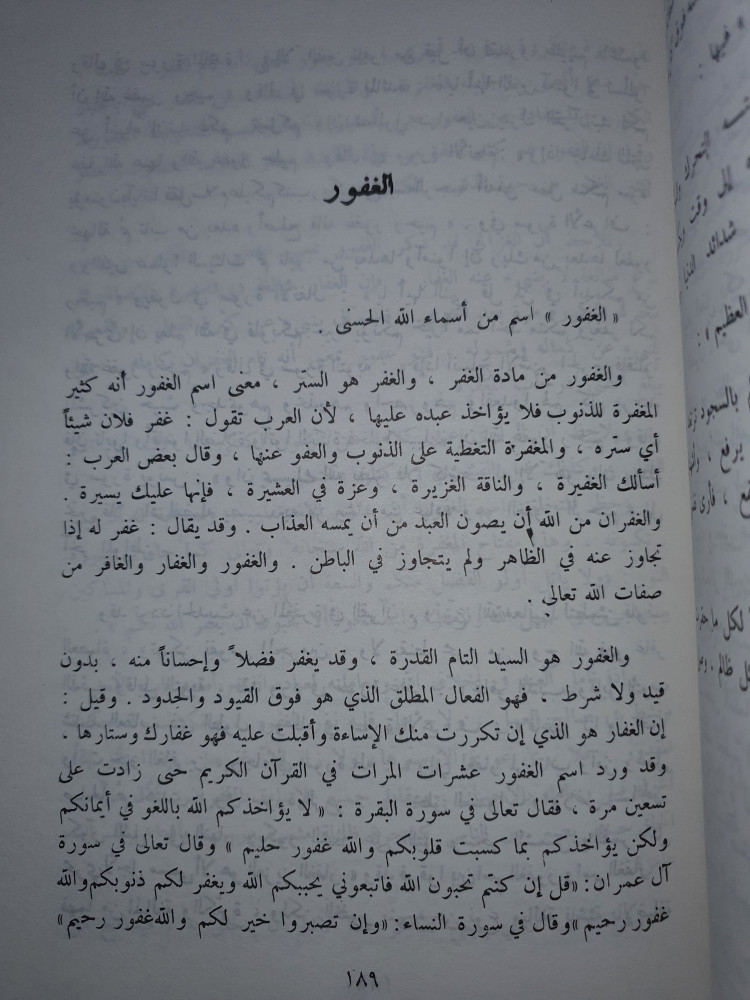 الغفور
« الغفور » اسم من أسماء الله الحسنى .
والغفور من مادة الغفر ، والغفر هو الستر ، معنى اسم الغفور أنه كثير
المغفرة للذنوب فلا يؤاخذ عبده عليها ، لأن العرب تقول : غفر فلان شيئاً
أي ستره ، والمغفرة التغطية على الذنوب والعفو عنها ، وقال بعض العرب :
أسألك الغفيرة ، والناقة الغزيرة ، وعزة في العشيرة ، فإنها عليك يسيرة .
والغفران من الله أن يصون العبد من أن يمسه العذاب . وقد يقال : غفر له إذا
تجاوز عنه في الظاهر ولم يتجاوز في الباطن . والغفور والغفار والغافر من
صفات الله تعالى .
والغفور هو السيد التام القدرة ، وقد يغفر فضلاً وإحساناً منه ، بدون
قيد ولا شرط . فهو الفعال المطلق الذي هو فوق القيود والحدود . وقيل :
إن الغفار هو الذي إن تكررت منك الإساءة وأقبلت عليه فهو غفارك وستارها .
وقد ورد اسم الغفور عشرات المرات في القرآن الكريم حتى زادت على
تسعين مرة ، فقال تعالى في سورة البقرة : « لا يؤاخذكم الله باللغو في أيمانكم
ولكن يؤاخذكم بما كسبت قلوبكم والله غفور حليم » وقال تعالى في سورة
آل عمران : «قل إن كنتم تحبون الله فاتبعوني يحببكم الله ويغفر لكم ذنوبكم والله
غفور رحيم » وقال في سورة النساء : «وإن تصبروا خير لكم والله غفور رحيم»
١٨٩
« فيها :
التحرك
إلى وقت
شدائد الدنيا
العظيم » :
بالسجود
يرفع ،
لكل ما
كل ظالم .